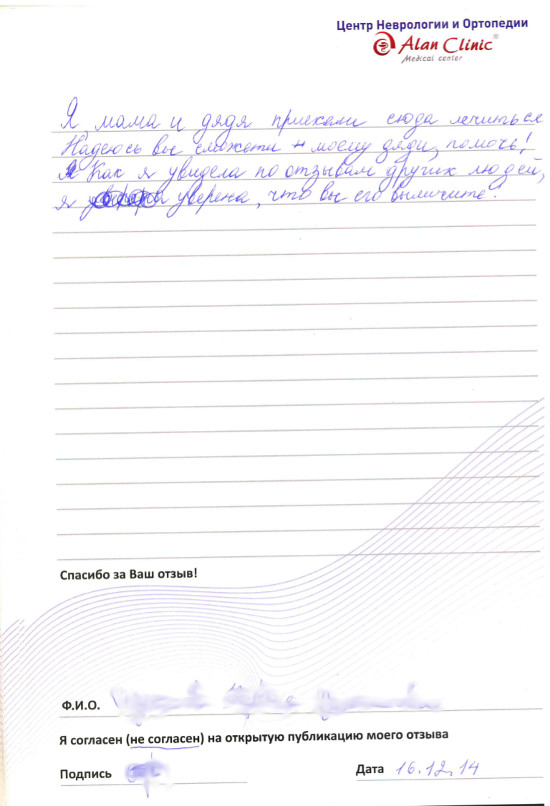 Центр Неврологии и Ортопедии
Alan Clinic®
Medical center
Я, мама и дядя приехали сюда лечиться
Надеюсь вы сможети моему дяди, помочь!
Как я увидела по отзывам других людей,
я уверена, что вы его выличите!
Спасибо за Ваш отзыв!
Ф.И.О.
Я согласен (не согласен) на открытую публикацию моего отзыва
Подпись
Дата 16.12.14